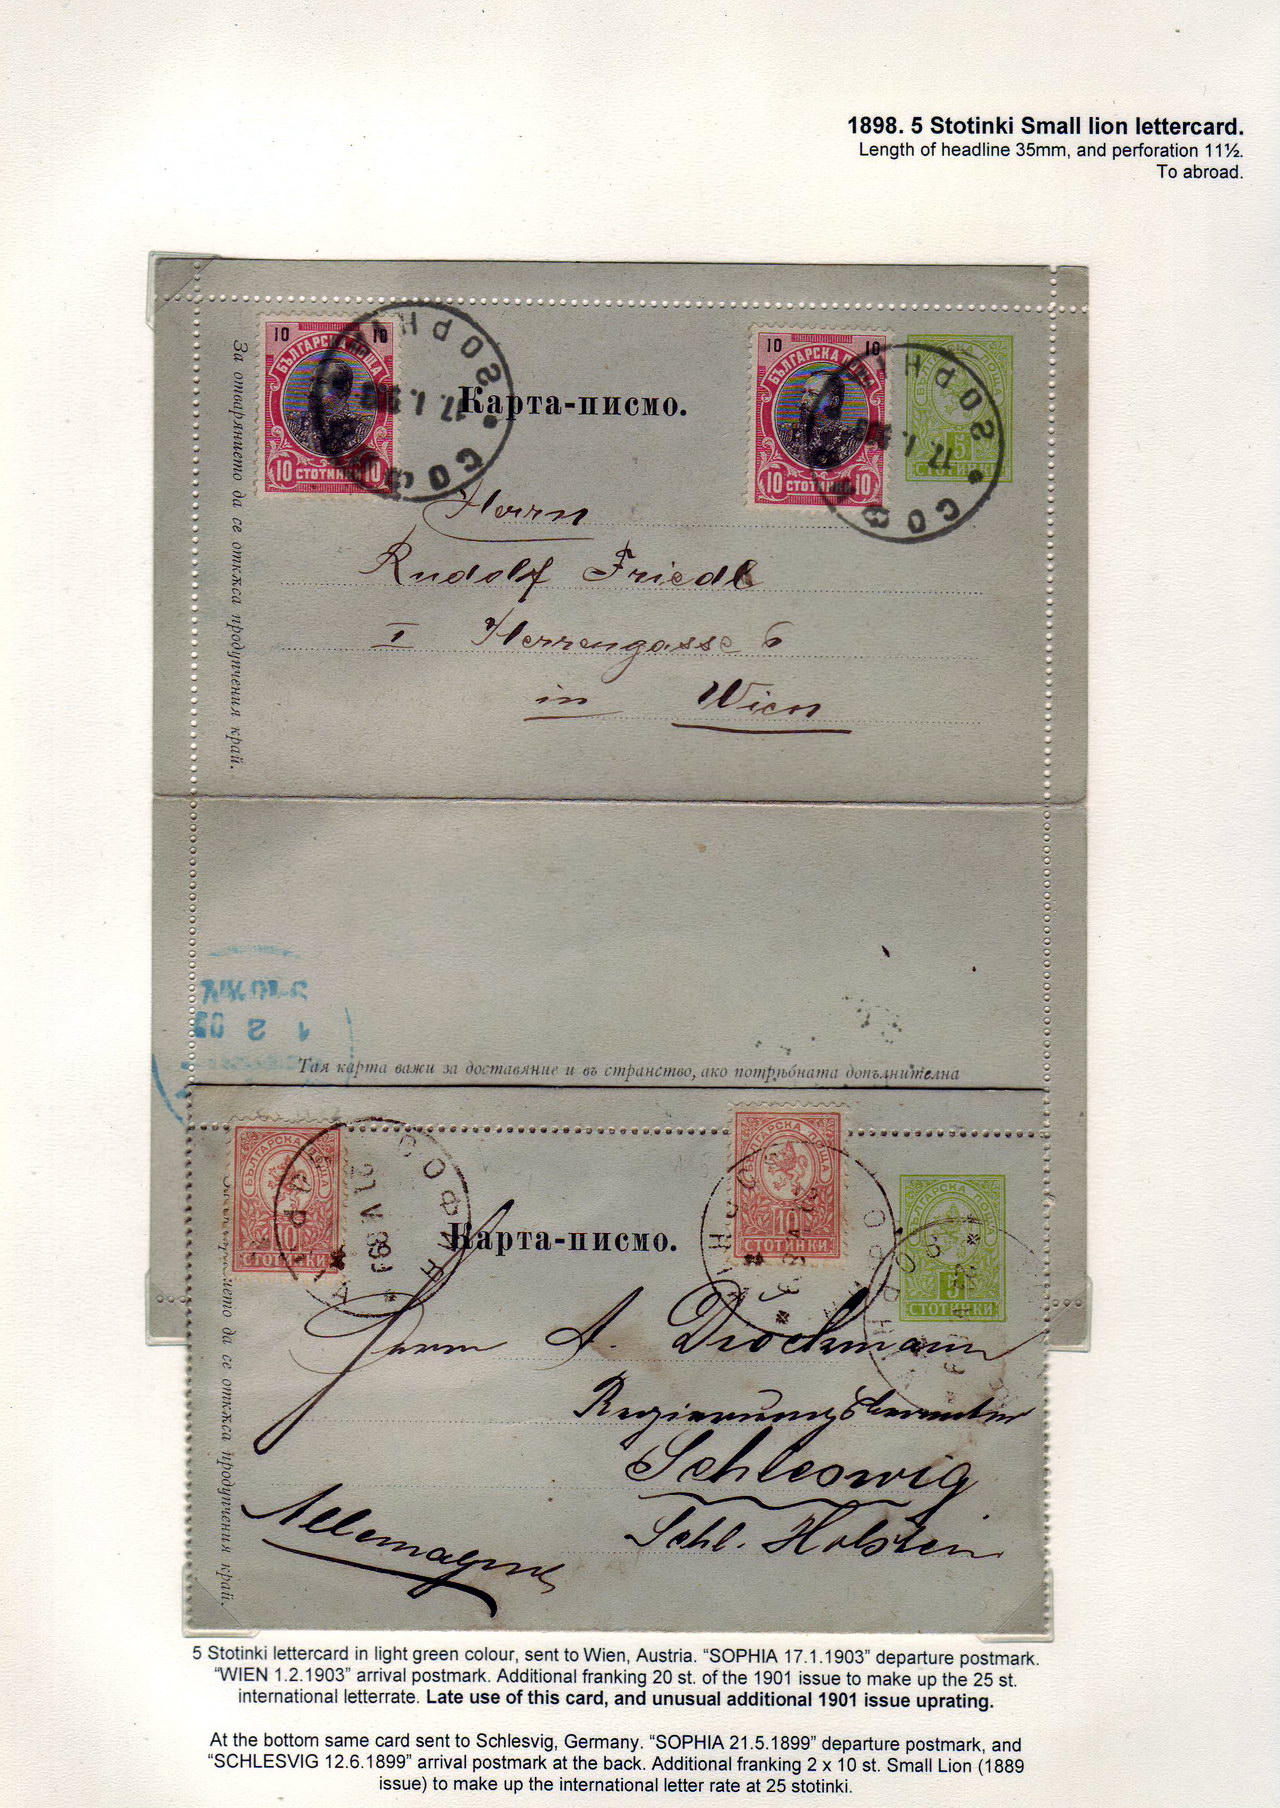 1898. 5 Stotinki Small lion lettercard.
Length of headline 35mm, and perforation 11½.
To abroad.
10 10
БЪЛГАРСКА ПОЩА
10 СТОТИНКИ 10
СОФИЯ SOPHIA
17. I. 903
Карта-писмо.
10 10
БЪЛГАРСКА ПОЩА
10 СТОТИНКИ 10
СОФИЯ SOPHIA
17. I.
БЪЛГАРСКА ПОЩА
5
СТОТИНКИ
За отварянието да се откѫса продупчения край.
Herrn
Rudolf Friedl
I Herrengasse 6
in Wien
1 2 03
Тая карта важи за доставяние и въ странство, ако потрѣбната допълнителна
БЪЛГАРСКА ПОЩА
10
СТОТИНКИ
СОФИЯ
Карта-писмо.
БЪЛГАРСКА ПОЩА
10
СТОТИНКИ
БЪЛГАРСКА ПОЩА
5
СТОТИНКИ
да се откѫса продупчения край.
Herrn A. Drockmann
Schleswig
Schl. Holstein
Allemagne
5 Stotinki lettercard in light green colour, sent to Wien, Austria. “SOPHIA 17.1.1903” departure postmark.
“WIEN 1.2.1903” arrival postmark. Additional franking 20 st. of the 1901 issue to make up the 25 st.
international letterrate. Late use of this card, and unusual additional 1901 issue uprating.
At the bottom same card sent to Schlesvig, Germany. “SOPHIA 21.5.1899” departure postmark, and
“SCHLESVIG 12.6.1899” arrival postmark at the back. Additional franking 2 x 10 st. Small Lion (1889
issue) to make up the international letter rate at 25 stotinki.